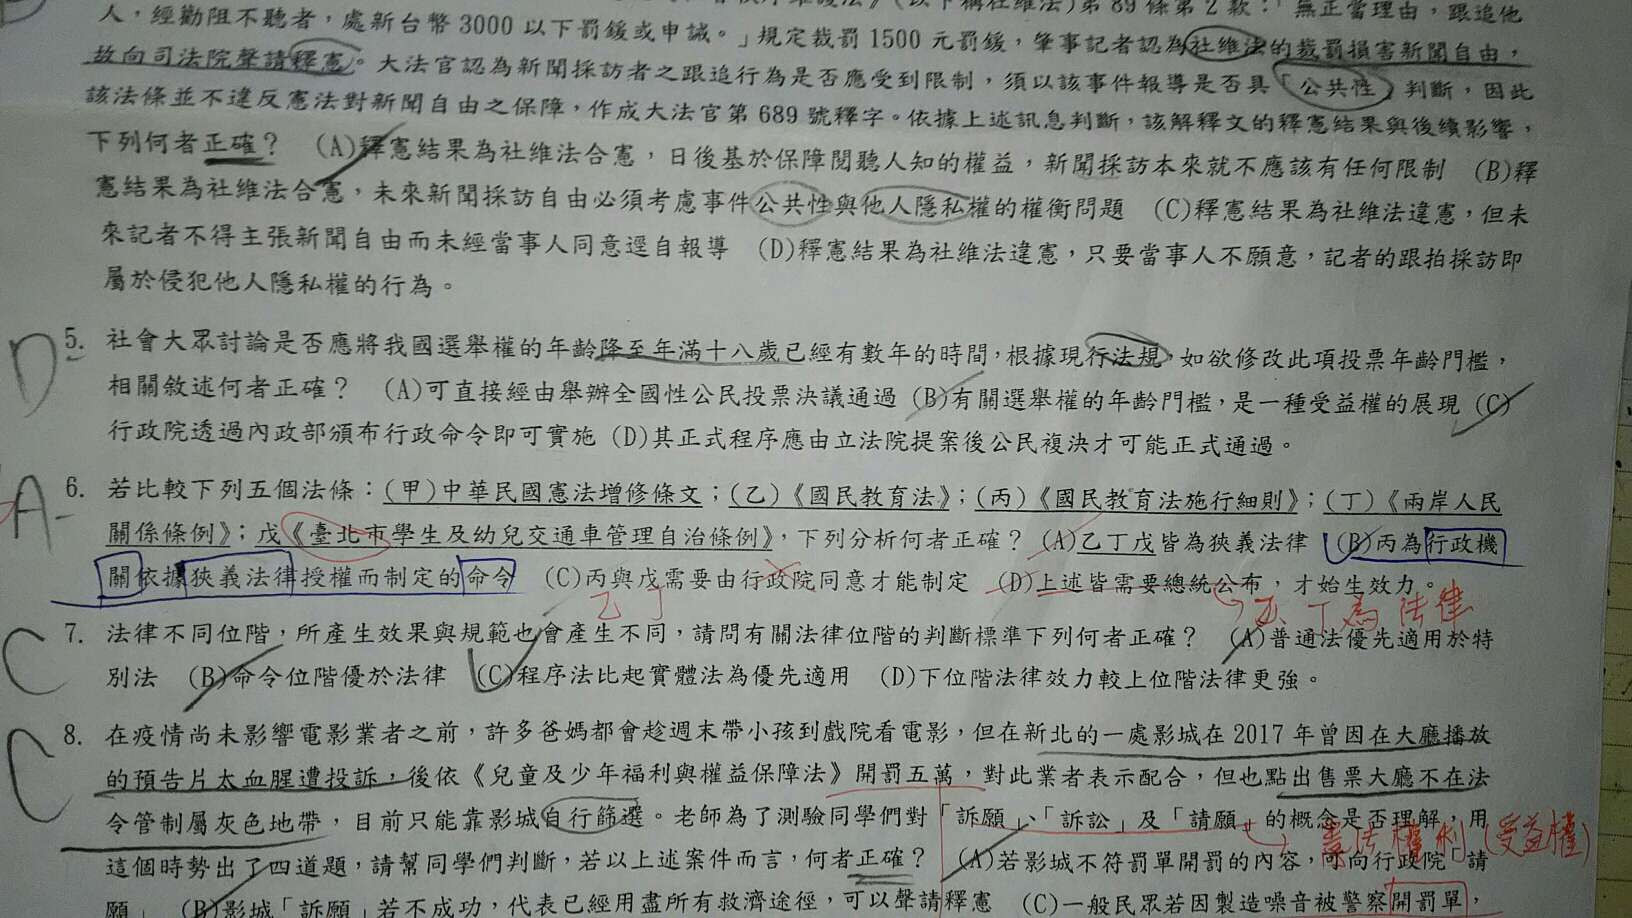 人，經勸阻不聽者，處新台幣3000以下罰鍰或申誡。」規定裁罰1500元罰鍰，肇事記者認為社維法的裁罰損害新聞自由，
故向司法院聲請釋憲。大法官認為新聞採訪者之跟追行為是否應受到限制，須以該事件報導是否具「公共性」判斷，因此
該法條並不違反憲法對新聞自由之保障，作成大法官第689號釋字。依據上述訊息判斷，該解釋文的釋憲結果與後續影響，
下列何者正確？ (A)釋憲結果為社維法合憲，日後基於保障閱聽人知的權益，新聞採訪本來就不應該有任何限制 (B)釋
憲結果為社維法合憲，未來新聞採訪自由必須考慮事件公共性與他人隱私權的權衡問題 (C)釋憲結果為社維法違憲，但未
來記者不得主張新聞自由而未經當事人同意逕自報導 (D)釋憲結果為社維法違憲，只要當事人不願意，記者的跟拍採訪即
屬於侵犯他人隱私權的行為。
D 5. 社會大眾討論是否應將我國選舉權的年齡降至年滿十八歲已經有數年的時間，根據現行法規，如欲修改此項投票年齡門檻，
相關敘述何者正確？ (A)可直接經由舉辦全國性公民投票決議通過 (B)有關選舉權的年齡門檻，是一種受益權的展現 (C)
行政院透過內政部頒布行政命令即可實施 (D)其正式程序應由立法院提案後公民複決才可能正式通過。
A 6. 若比較下列五個法條：(甲)中華民國憲法增修條文；(乙)《國民教育法》；(丙)《國民教育法施行細則》；(丁)《兩岸人民
關係條例》；戊《臺北市學生及幼兒交通車管理自治條例》，下列分析何者正確？ (A)乙丁戊皆為狹義法律 (B)丙為行政機
關依據狹義法律授權而制定的命令 (C)丙與戊需要由行政院同意才能制定 (D)上述皆需要總統公布，才始生效力。
乙丁
丁為法律
C 7. 法律不同位階，所產生效果與規範也會產生不同，請問有關法律位階的判斷標準下列何者正確？ (A)普通法優先適用於特
別法 (B)命令位階優於法律 (C)程序法比起實體法為優先適用 (D)下位階法律效力較上位階法律更強。
C 8. 在疫情尚未影響電影業者之前，許多爸媽都會趁週末帶小孩到戲院看電影，但在新北的一處影城在2017年曾因在大廳播放
的預告片太血腥遭投訴，後依《兒童及少年福利與權益保障法》開罰五萬，對此業者表示配合，但也點出售票大廳不在法
令管制屬灰色地帶，目前只能靠影城自行篩選。老師為了測驗同學們對「訴願」、「訴訟」及「請願」的概念是否理解，用
憲法權利(受益權)
這個時勢出了四道題，請幫同學們判斷，若以上述案件而言，何者正確？ (A)若影城不符罰單開罰的內容，可向行政院「請
願」 (B)影城「訴願」若不成功，代表已經用盡所有救濟途徑，可以聲請釋憲 (C)一般民眾若因製造噪音被警察開罰單，